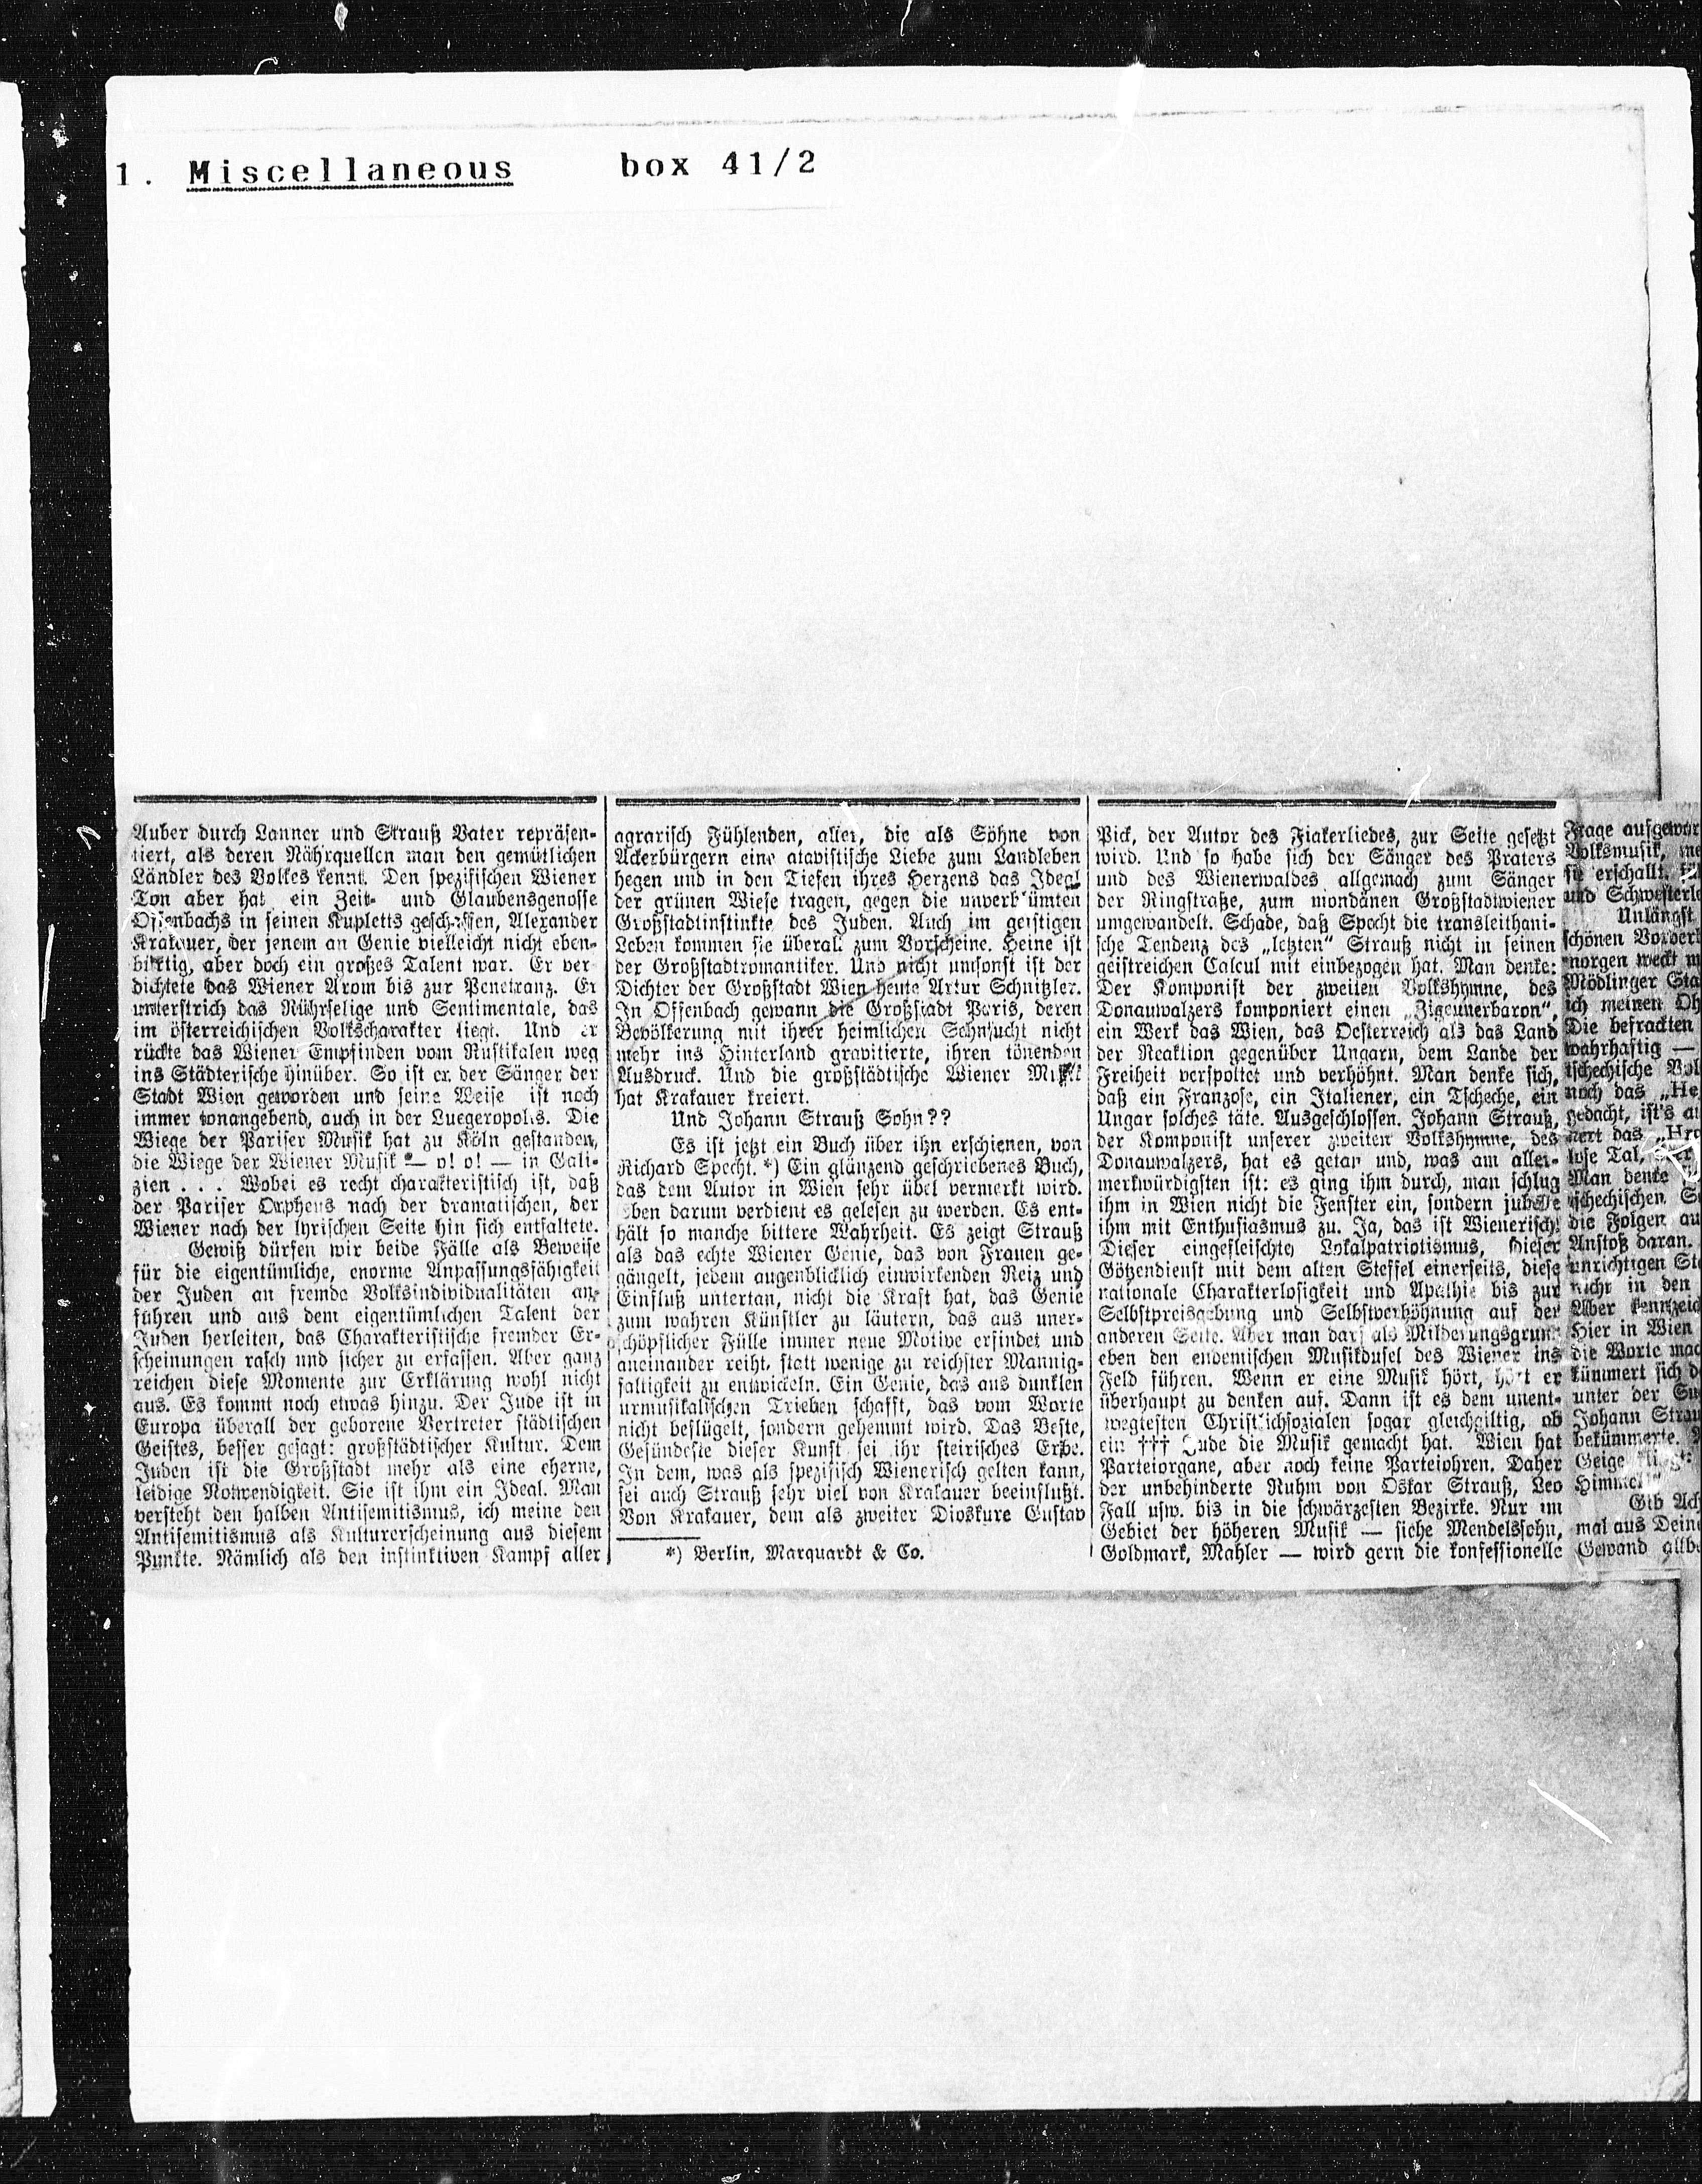 1. Miscellaneous box 41/2
Auber durch Lanner und Strauß Vater repräsen-
tiert, als deren Nährquellen man den gemütlichen
Ländler des Volkes kennt. Den spezifischen Wiener
Ton aber hat ein Zeit- und Glaubensgenosse
Offenbachs in seinen Kupletts geschaffen, Alexander
Krakauer, der jenem an Genie vielleicht nicht eben-
bürtig, aber doch ein großes Talent war. Er ver
dichtete das Wiener Arom bis zur Penetranz. Er
unterstrich das Rührselige und Sentimentale, das
im österreichischen Volkscharakter liegt. Und er
rückte das Wiener Empfinden vom Rustikalen weg
ins Städterische hinüber. So ist er der Sänger der
Stadt Wien geworden und seine Weise ist noch
immer tonangebend, auch in der Luegeropolis. Die
Wiege der Pariser Musik hat zu Köln gestanden,
die Wiege der Wiener Musik — o! o! — in Gali-
zien . . . Wobei es recht charakteristisch ist, daß
der Pariser Orpheus nach der dramatischen, der
Wiener nach der lyrischen Seite hin sich entfaltete.
Gewiß dürfen wir beide Fälle als Beweise
für die eigentümliche, enorme Anpassungsfähigkeit
der Juden an fremde Volksindividualitäten an-
führen und aus dem eigentümlichen Talent der
Juden herleiten, das Charakteristische fremder Er-
scheinungen rasch und sicher zu erfassen. Aber ganz
reichen diese Momente zur Erklärung wohl nicht
aus. Es kommt noch etwas hinzu. Der Jude ist in
Europa überall der geborene Vertreter städtischen
Geistes, besser gesagt: großstädtischer Kultur. Dem
Juden ist die Großstadt mehr als eine eherne,
leidige Notwendigkeit. Sie ist ihm ein Ideal. Man
versteht den halben Antisemitismus, ich meine den
Antisemitismus als Kulturerscheinung aus diesem
Punkte. Nämlich als den instinktiven Kampf aller
agrarisch Fühlenden, aller, die als Söhne von
Ackerbürgern eine atavistische Liebe zum Landleben
hegen und in den Tiefen ihres Herzens das Ideal
der grünen Wiese tragen, gegen die unverblümten
Großstadtinstinkte des Juden. Auch im geistigen
Leben kommen sie überall zum Vorscheine. Heine ist
der Großstadtromantiker. Und nicht umsonst ist der
Dichter der Großstadt Wien heute Artur Schnitzler.
In Offenbach gewann die Großstadt Paris, deren
Bevölkerung mit ihrer heimlichen Sehnsucht nicht
mehr ins Hinterland gravitierte, ihren tönenden
Ausdruck. Und die großstädtische Wiener Musik
hat Krakauer kreiert.
Und Johann Strauß Sohn??
Es ist jetzt ein Buch über ihn erschienen, von
Richard Specht. *) Ein glänzend geschriebenes Buch,
das dem Autor in Wien sehr übel vermerkt wird.
Eben darum verdient es gelesen zu werden. Es ent-
hält so manche bittere Wahrheit. Es zeigt Strauß
als das echte Wiener Genie, das von Frauen ge-
gängelt, jedem augenblicklich einwirkenden Reiz und
Einfluß untertan, nicht die Kraft hat, das Genie
zum wahren Künstler zu läutern, das aus uner-
schöpflicher Fülle immer neue Motive erfindet und
aneinander reiht, statt wenige zu reichster Mannig-
faltigkeit zu entwickeln. Ein Genie, das aus dunklen
urmusikalischen Trieben schafft, das vom Worte
nicht beflügelt, sondern gehemmt wird. Das Beste,
Gesündeste dieser Kunst sei ihr steirisches Erbe.
In dem, was als spezifisch Wienerisch gelten kann,
sei auch Strauß sehr viel von Krakauer beeinflußt.
Von Krakauer, dem als zweiter Dioskure Gustav
*) Berlin, Marquardt & Co.
Pick, der Autor des Fiakerliedes, zur Seite gesetzt
wird. Und so habe sich der Sänger des Praters
und des Wienerwaldes allgemach zum Sänger
der Ringstraße, zum mondänen Großstadtwiener
umgewandelt. Schade, daß Specht die transleithani-
sche Tendenz des „letzten“ Strauß nicht in seinen
geistreichen Calcul mit einbezogen hat. Man denke:
Der Komponist der zweiten Volkshymne, des
Donauwalzers komponiert einen „Zigeunerbaron“,
ein Werk das Wien, das Oesterreich als das Land
der Reaktion gegenüber Ungarn, dem Lande der
Freiheit verspottet und verhöhnt. Man denke sich,
daß ein Franzose, ein Italiener, ein Tscheche, ein
Ungar solches täte. Ausgeschlossen. Johann Strauß,
der Komponist unserer zweiten Volkshymne, des
Donauwalzers, hat es getan und, was am aller-
merkwürdigsten ist: es ging ihm durch, man schlug
ihm in Wien nicht die Fenster ein, sondern jubelte
ihm mit Enthusiasmus zu. Ja, das ist Wienerisch!
Dieser eingefleischte Lokalpatriotismus, dieser
Götzendienst mit dem alten Steffel einerseits, diese
nationale Charakterlosigkeit und Apathie bis zur
Selbstpreisgebung und Selbstverhöhnung auf der
anderen Seite. Aber man darf als Milderungsgrund
eben den endemischen Musikdusel des Wiener ins
Feld führen. Wenn er eine Musik hört, hört er
überhaupt zu denken auf. Dann ist es dem unent-
wegtesten Christlichsozialen sogar gleichgiltig, ob
ein ††† Jude die Musik gemacht hat. Wien hat
Parteiorgane, aber noch keine Parteiohren. Daher
der unbehinderte Ruhm von Oskar Strauß, Leo
Fall usw. bis in die schwärzesten Bezirke. Nur im
Gebiet der höheren Musik — siehe Mendelssohn,
Goldmark, Mahler — wird gern die konfessionelle
Frage aufgewor
Volksmusik,
sie erschallt.
und Schwesterle
Unlängst
schönen Vorder
morgen weckt m
Mödlinger Sta
ich meinen Oh
Die befrackten
wahrhaftig —
tschechische Vol
noch das „He
gedacht, ist's a
nert das „Hro
lose Tal,
Man denke
tschechischen S
die Folgen au
Anstoß daran.
unrichtigen St
nicht in den
Aber kennzeich
Hier in Wien
die Worte mac
kümmert sich d
unter der
Johann Strau
bekümmerte.
Geige
Himmel“
Gib Ach
mal aus Dein
Gewand allb